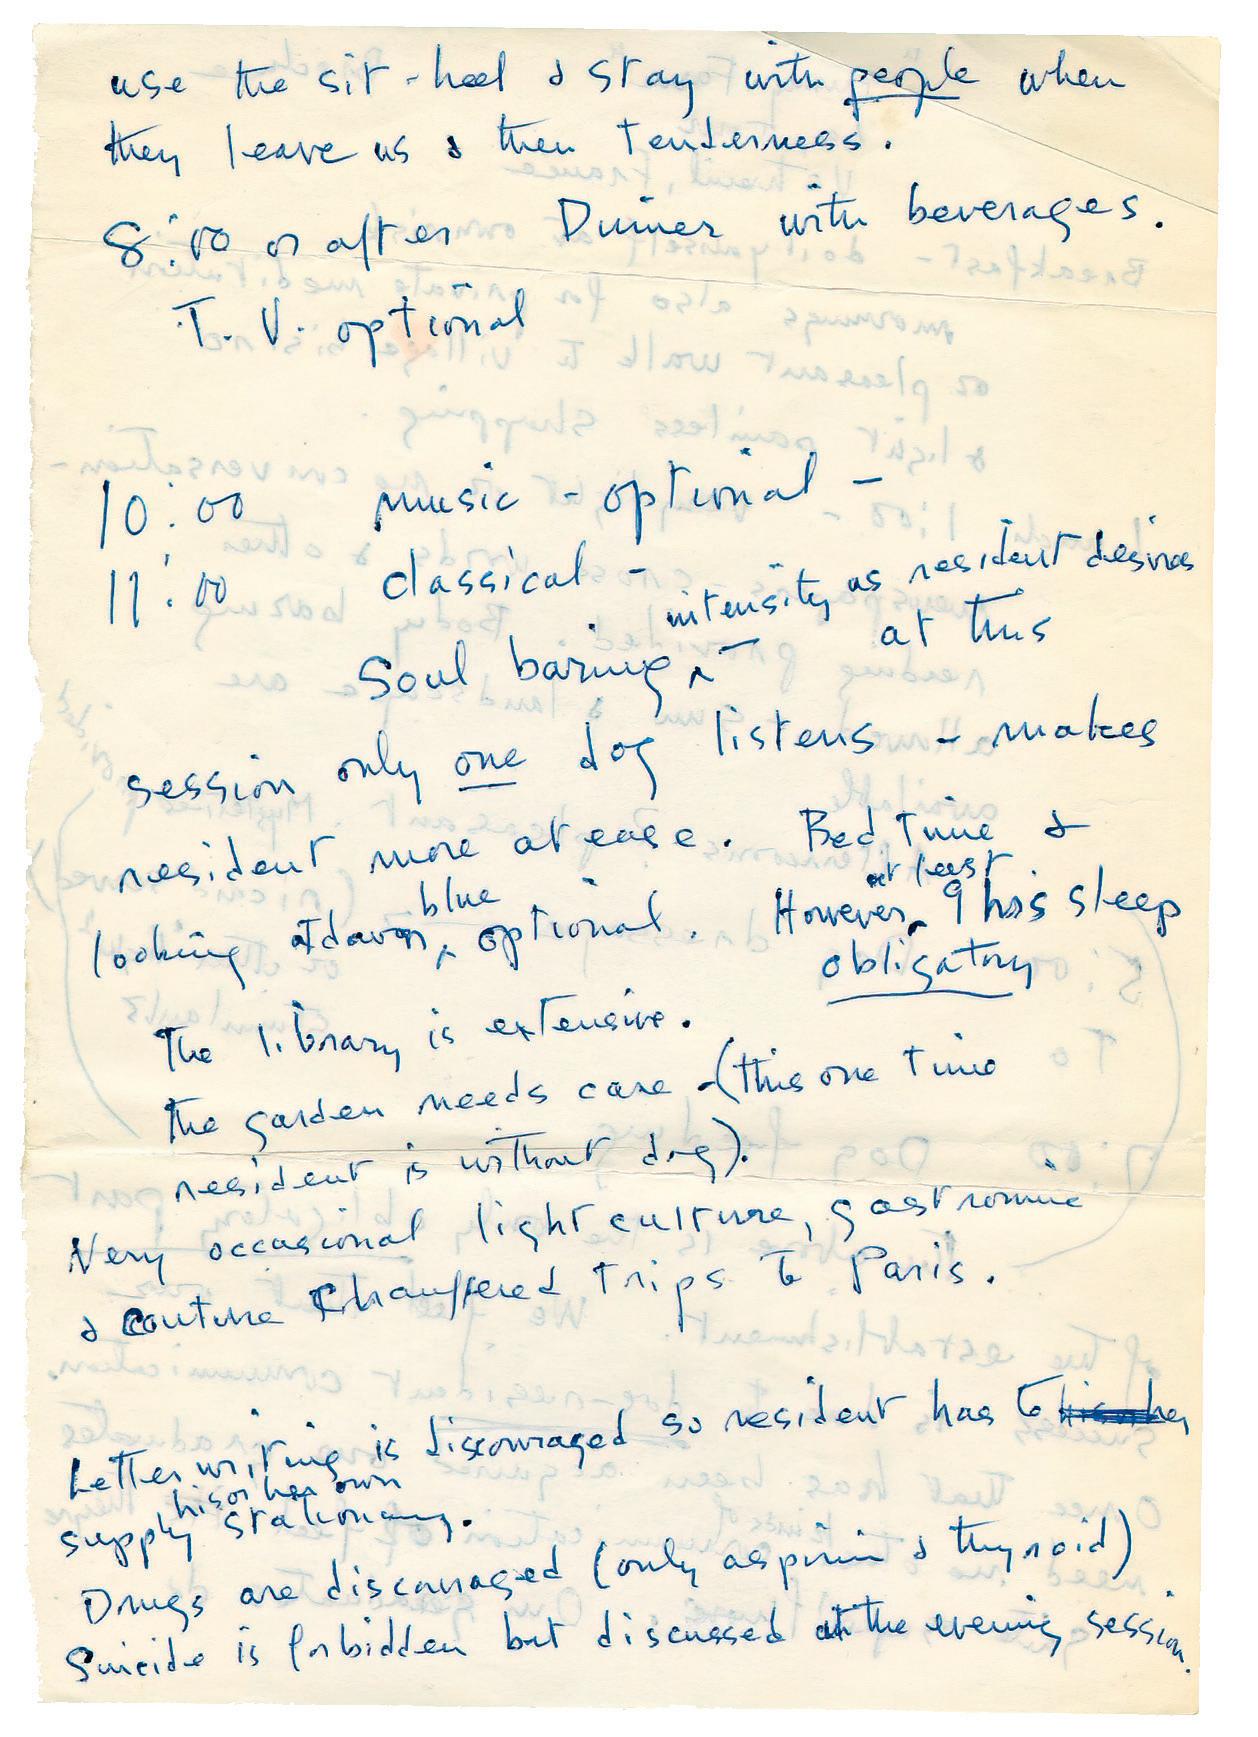 use the sit - heel & stay with people when
they leave us & then tenderness.
8:00 or after Dinner with beverages.
T.V. optional
10:00 music - optional -
11:00 classical -
intensity as resident desires
Soul baring ^ - at this
session only one dog listens - makes
resident more at ease. Bed time &
blue at least
looking at dawn ^ optional. However ^ 9 hrs sleep
obligatory
The library is extensive.
The garden needs care - (this one time
resident is without dog).
Very occasional light culture, gastronomic
& couture chauffered trips to Paris.
Letter writing is discouraged so resident has to
his or her own
supply stationary.
Drugs are discouraged (only aspirin & thyroid)
Suicide is forbidden but discussed at the evening session.